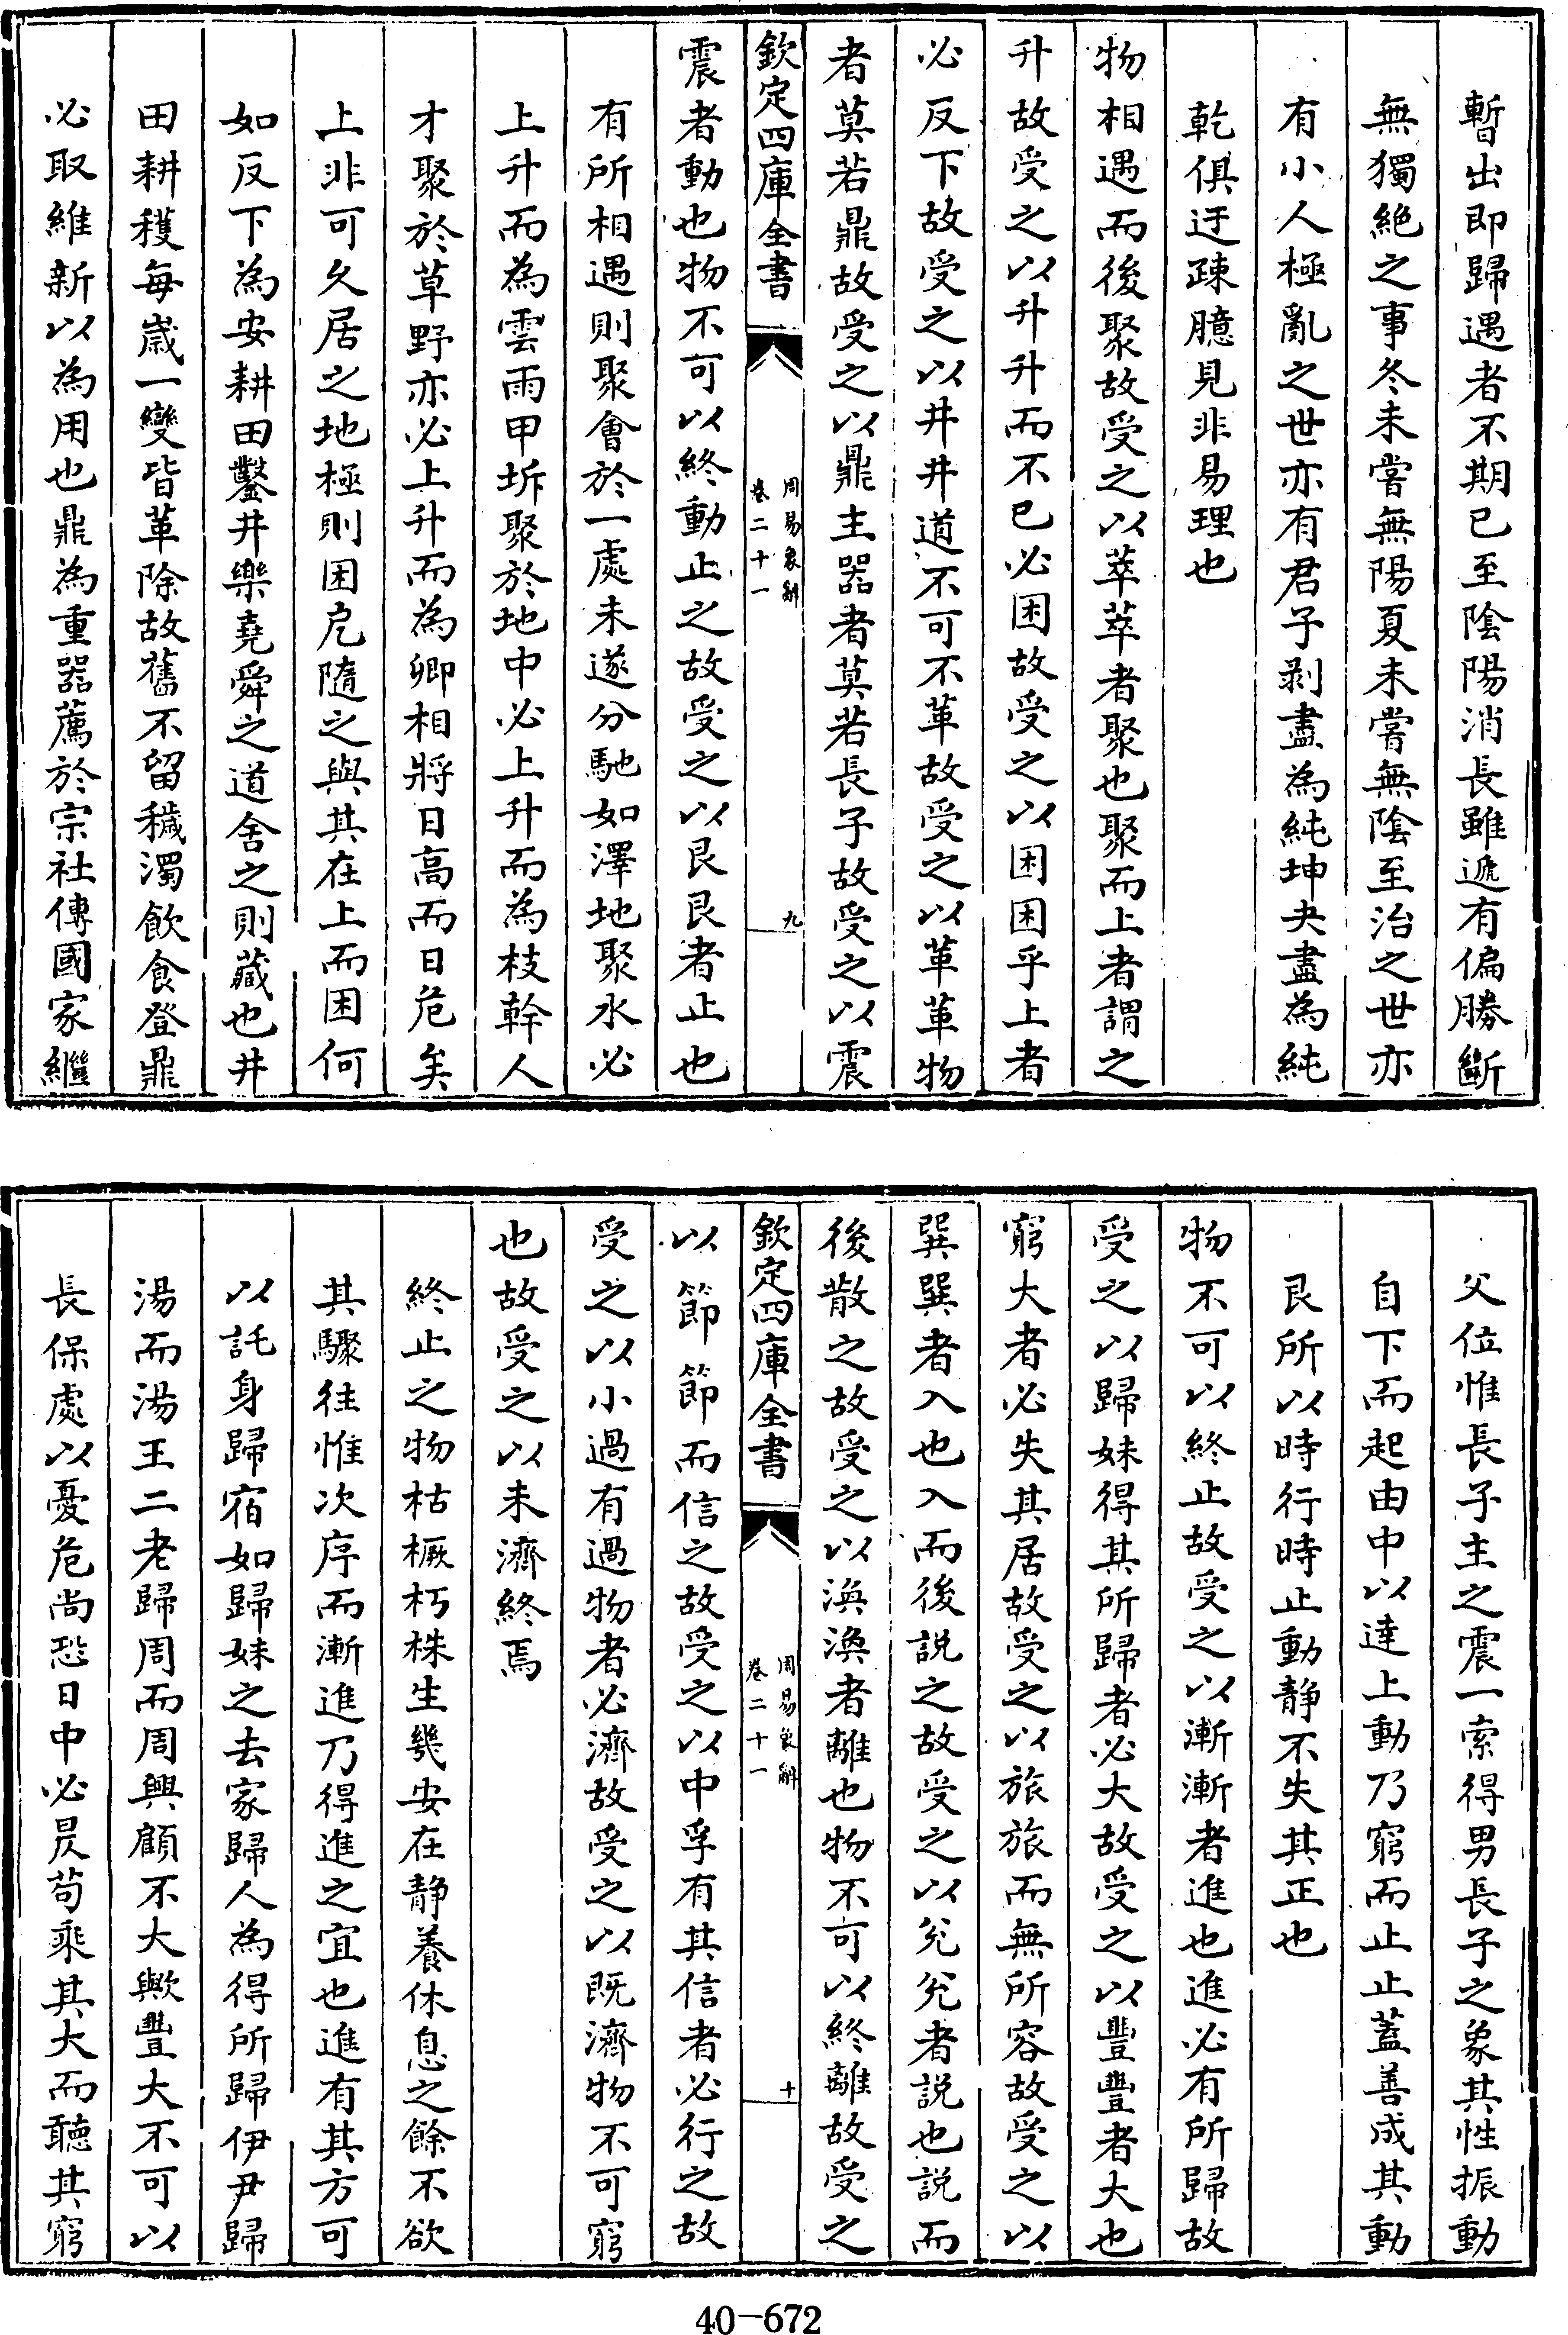 暫出即歸遇者不期已至陰陽消長雖遞有偏勝斷
無獨絶之事冬未嘗無陽夏未嘗無陰至治之世亦
有小人極亂之世亦有君子剥盡為純坤夬盡為純
乾俱迂疎臆見非易理也
物相遇而後聚故受之以萃萃者聚也聚而上者謂之
升故受之以升升而不已必困故受之以困困乎上者
必反下故受之以井井道不可不革故受之以革革物
者莫若鼎故受之以鼎主器者莫若長子故受之以震
欽定四庫全書
周易象辭
卷二十一
九
震者動也物不可以終動止之故受之以艮艮者止也
有所相遇則聚會於一處未遂分馳如澤地聚水必
上升而為雲雨甲坼聚於地中必上升而為枝幹人
才聚於草野亦必上升而為卿相將日高而日危矣
上非可久居之地極則困戹隨之與其在上而困何
如反下為安耕田鑿井樂堯舜之道舍之則藏也井
田耕穫每歲一變皆革除故舊不留穢濁飲食登鼎
必取維新以為用也鼎為重器薦於宗社傳國家繼
父位惟長子主之震一索得男長子之象其性振動
自下而起由中以達上動乃窮而止止蓋善成其動
艮所以時行時止動靜不失其正也
物不可以終止故受之以漸漸者進也進必有所歸故
受之以歸妹得其所歸者必大故受之以豐豐者大也
窮大者必失其居故受之以旅旅而無所容故受之以
巽巽者入也入而後説之故受之以兊兊者説也説而
後散之故受之以渙渙者離也物不可以終離故受之
欽定四庫全書
周易象辭
卷二十一
十
以節節而信之故受之以中孚有其信者必行之故
受之以小過有過物者必濟故受之以既濟物不可窮
也故受之以未濟終焉
終止之物枯橛朽株生幾安在静養休息之餘不欲
其驟往惟次序而漸進乃得進之宜也進有其方可
以託身歸宿如歸妹之去家歸人為得所歸伊尹歸
湯而湯王二老歸周而周興顧不大歟豐大不可以
長保處以憂危尚恐日中必昃茍乘其大而聽其窮
40-672